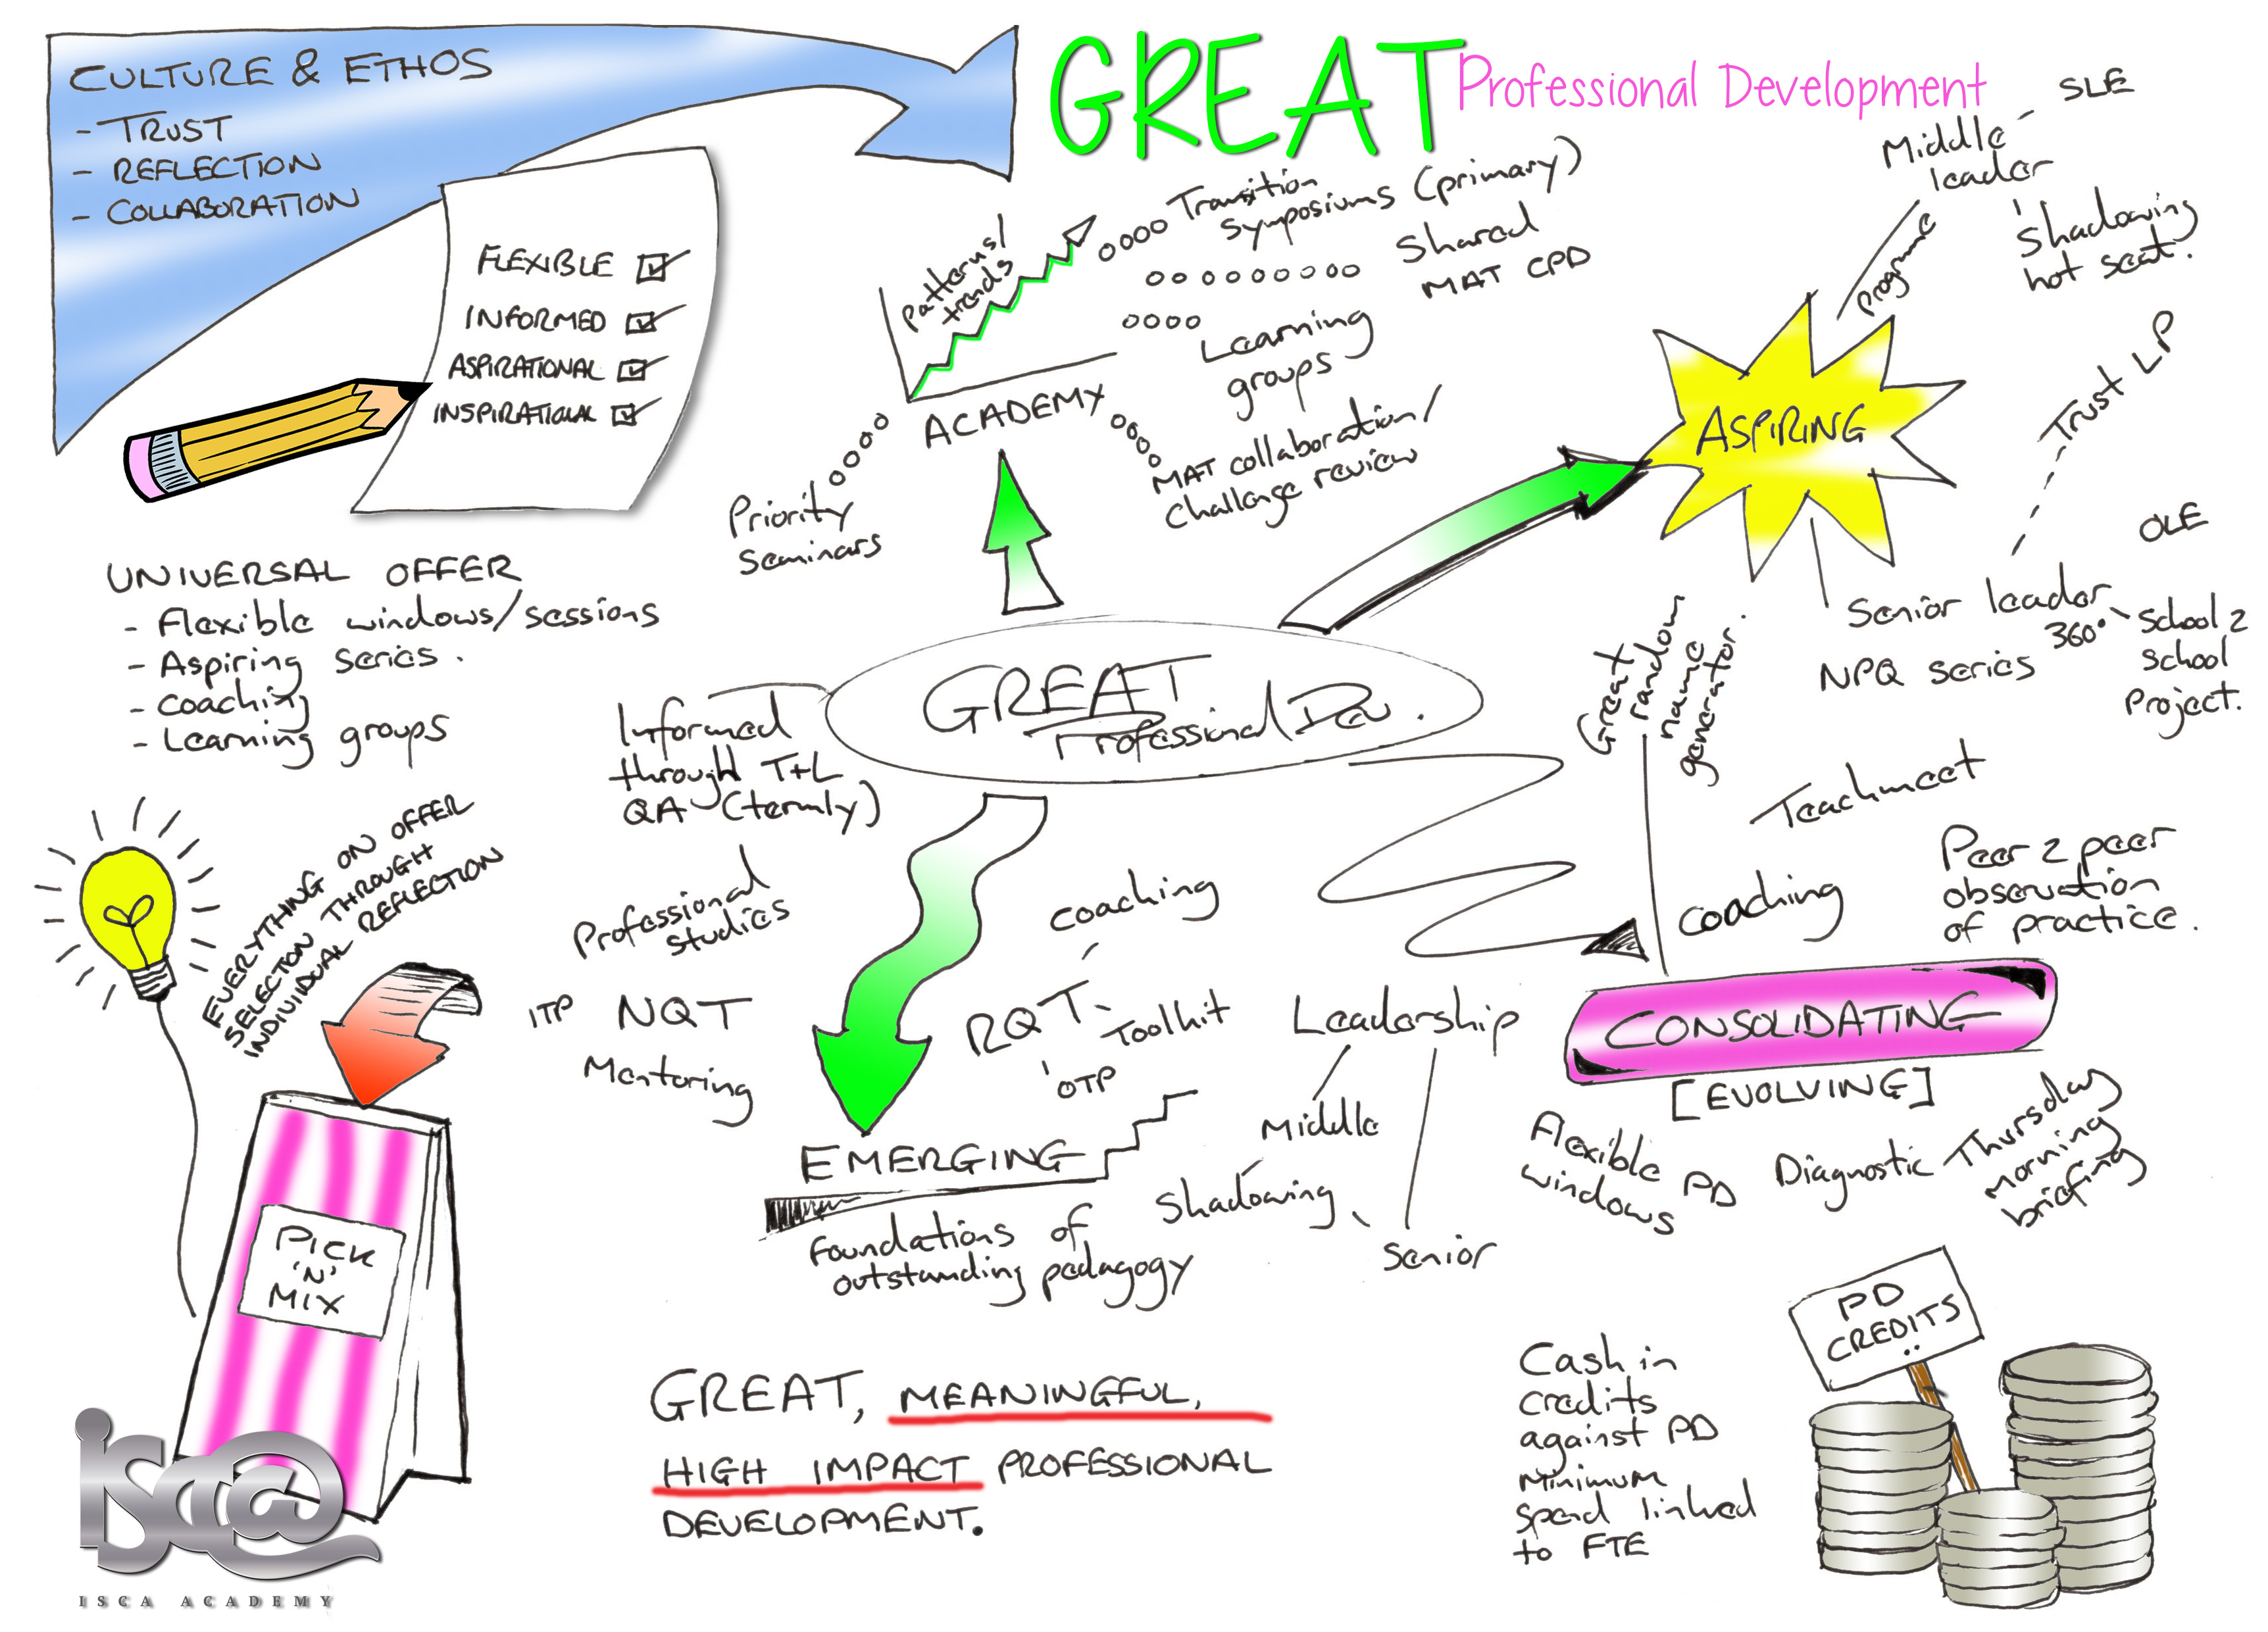 CULTURE & ETHOS
- TRUST
- REFLECTION
- COLLABORATION
FLEXIBLE
INFORMED
ASPIRATIONAL
INSPIRATIONAL
GREAT Professional Development
patterns/
trends
Transition
Symposiums (primary)
Shared
MAT CPD
Learning
groups
ACADEMY
MAT collaboration/
challenge review
Priority
seminars
SLE
Middle
leader
programe
Shadowing
hot seat.
ASPIRING
Trust LP
OLE
Senior leader
360°
NPQ series
School 2
school
Project.
UNIVERSAL OFFER
- Flexible windows/sessions
- Aspiring series.
- Coaching
- Learning groups
GREAT
Professional Dev.
Informed
through T+L
QA (termly)
Great
random
name
generator.
Teachmeet
Coaching
Peer 2 peer
observation
of practice.
EVERYTHING ON OFFER
SELECTON THROUGH
INDIVIDUAL REFLECTION
PICK
'N'
MIX
Professional
studies
ITP NQT
Mentoring
Coaching
RQT
Toolkit
OTP
EMERGING
Foundations of
outstanding pedagogy
Leadership
Middle
Shadowing
Senior
CONSOLIDATING
[EVOLVING]
Flexible PD
windows
Diagnostic
Thursday
morning
briefing
GREAT, MEANINGFUL,
HIGH IMPACT PROFESSIONAL
DEVELOPMENT.
Cash in
credits
against PD
Minimum
spend linked
to FTE
PD
CREDITS
isc@
ISCA ACADEMY